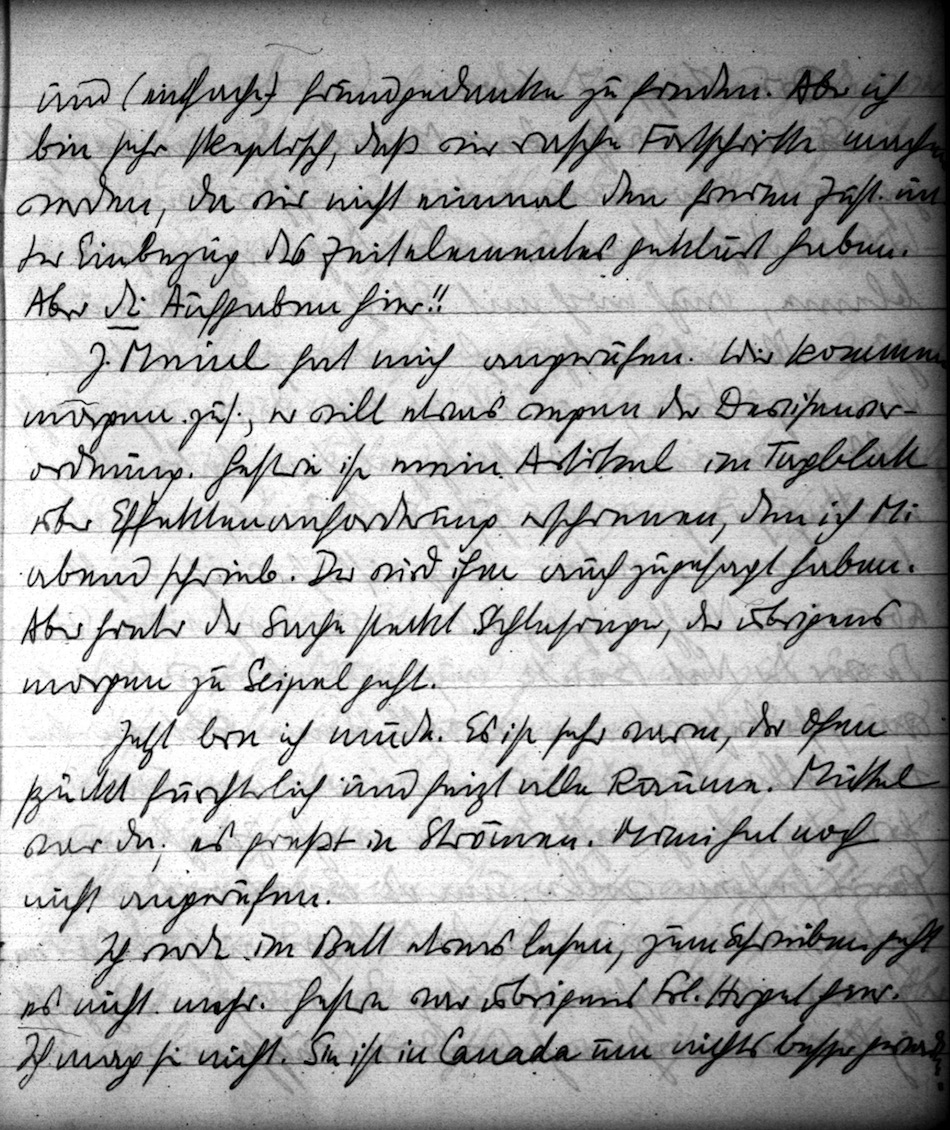 und (einfache) Grundgedanken zu finden. Aber ich
bin sehr skeptisch, daß wir rasche Fortschritte machen
werden, da wir nicht einmal den freien Zust. und
der Einbezug des Zeitelementes geklärt haben.
Aber die Aufgaben hier!!
J. Meinl hat mich angerufen. Wir kommen
morgen zus., er will etwas wegen der Devisenver-
ordnung. Gestern ist mein Artikel im Tagblatt
über Effektenanforderung erschienen, den ich Mi
abend schrieb. Der wird ihm auch zugesagt haben.
Aber hinter der Sache steckt Schlesinger, der übrigens
morgen zu Seipel geht.
Jetzt bin ich müde. Es ist sehr warm, der Ofen
zückt fürchterlich und heizt alle Räume.
war da; es gießt in Strömen. hat noch
nicht angerufen.
Ich werde im Bett etwas lesen, zum Schreiben geht
es nicht mehr. Gestern war übrigens Frl. hier.
Ich mag sie nicht. Sie ist in Canada um nichts besser